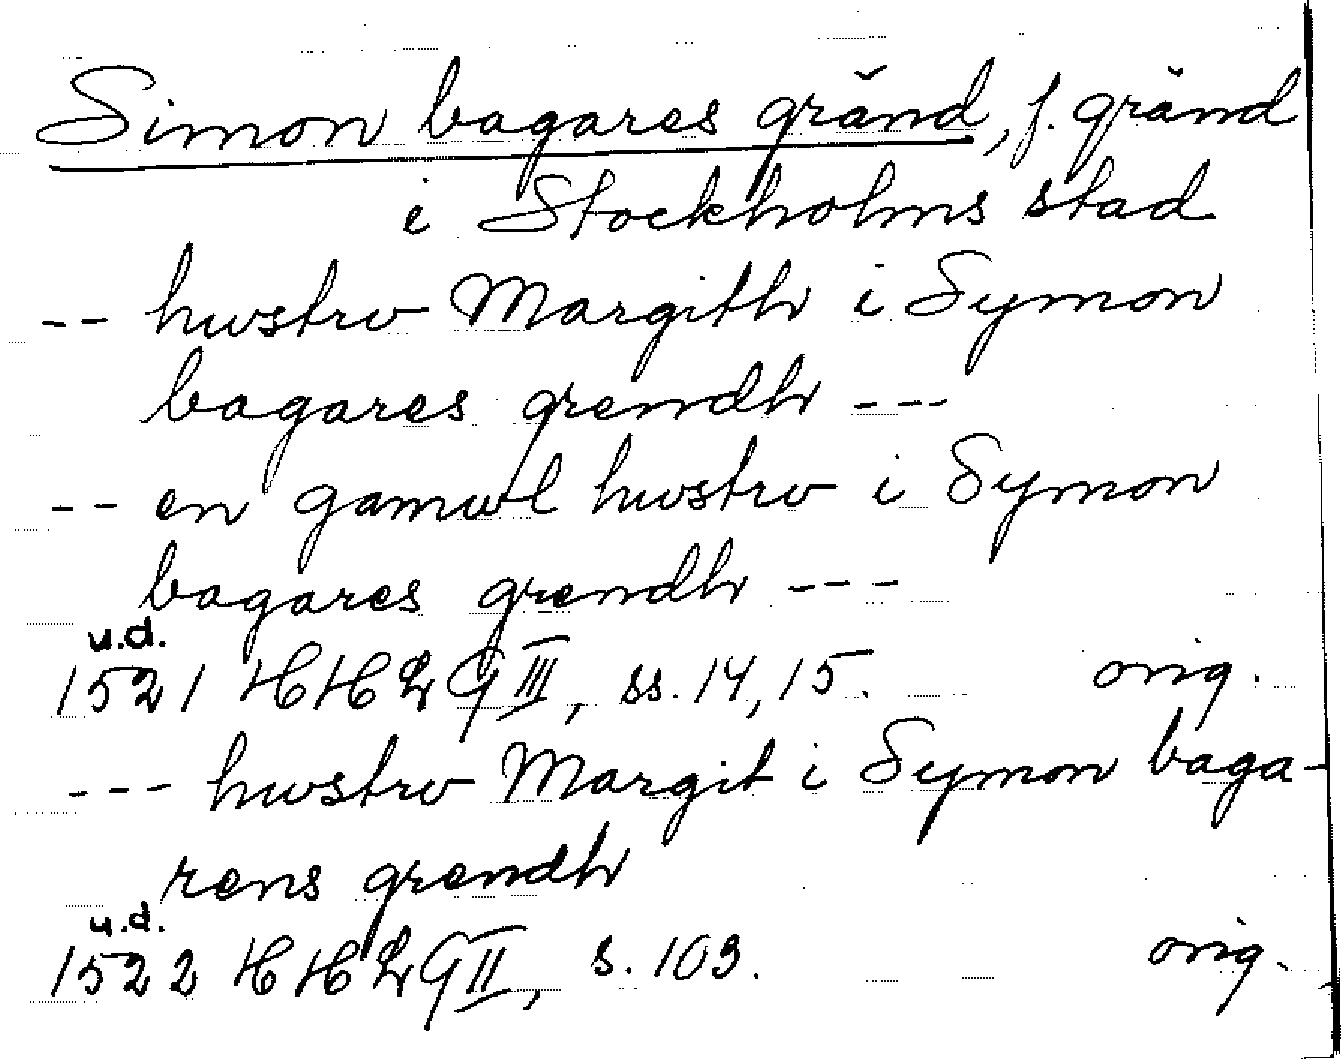 Simon bagares gränd, f. gränd
i Stockholms stad
-- hwstrv Margith i Symon
bagares grendh ---
-- en gamwl hwstrv i Symon
bagares grendh ---
u.d.
1521 HHLG III, ss. 14, 15. orig.
--- hwstrv Margit i Symon baga-
rens grendh
u.d.
1522 HHLG II, s. 103. orig.